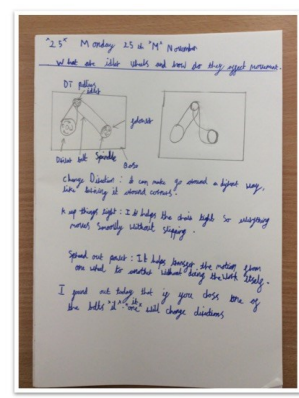 "25" Monday 25th "M" November
What are idler wheels and how do they affect movement.
DT pulleys
idler
Driver belt Spindle
Base
Change Direction : it can make go around a different way,
like bending it around corners.
k up things tight : It helps the chain tight so everything
moves smoothly without slipping.
Spread out power : It helps transfer the motion from
one wheel to another without doing the work itself.
I found out today that if you cross one of
the belts "it" "one" will change directions